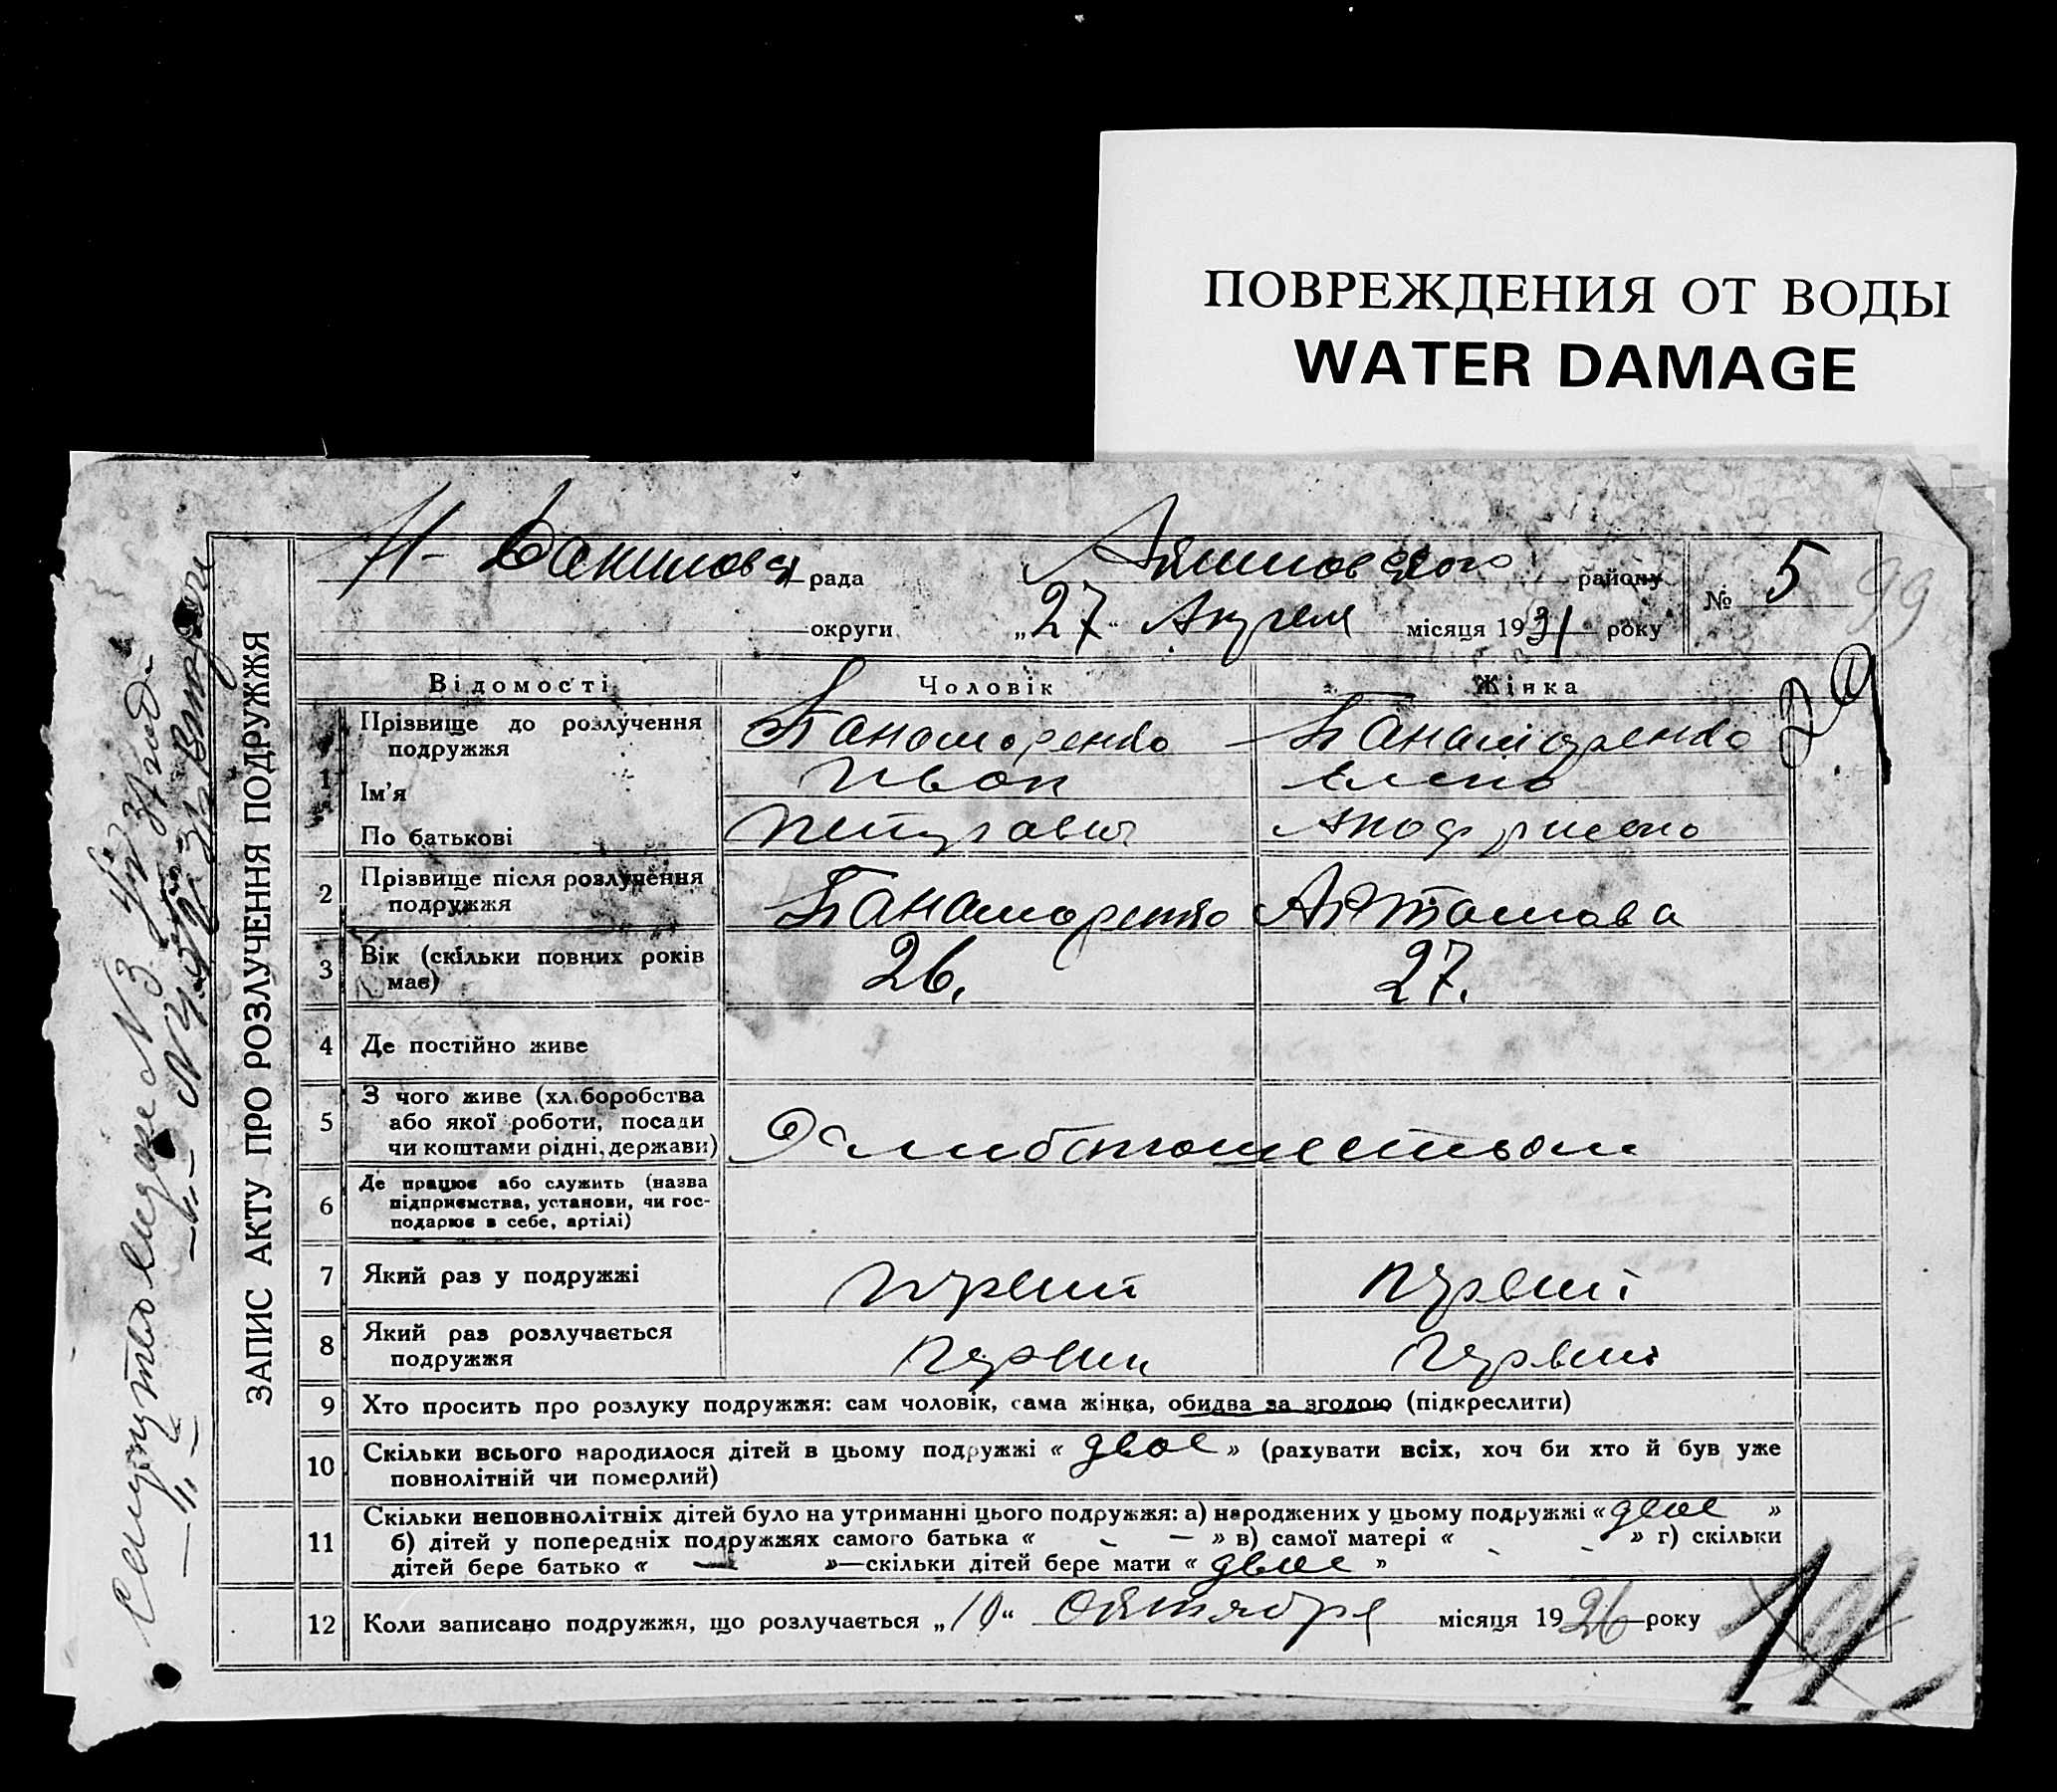 ПОВРЕЖДЕНИЯ ОТ ВОДЫ
WATER DAMAGE
ЗАПИС АКТУ ПРО РОЗЛУЧЕННЯ ПОДРУЖЖЯ
рада району
№ 5
99
округи „27“ Апреля місяця 1931 року
Відомості Чоловік Жінка
1 Прізвище до розлучення подружжя Панаморенко Панаморенко
Ім'я Иван Елена
По батькові Петрович
2 Прізвище після розлучення подружжя Панаморенко
3 Вік (скільки повних років має) 26. 27.
4 Де постійно живе
5 З чого живе (хліборобства
або якої роботи, посади
чи коштами рідні, держави)
6 Де працює або служить (назва
підприємства, установи, чи гос-
подарює в себе, артілі)
7 Який раз у подружжі первий первий
8 Який раз розлучається подружжя первий первий
9 Хто просить про розлуку подружжя: сам чоловік, сама жінка, обидва за згодою (підкреслити)
10 Скільки всього народилося дітей в цьому подружжі « двое » (рахувати всіх, хоч би хто й був уже
повнолітній чи померлий)
11 Скільки неповнолітніх дітей було на утриманні цього подружжя: а) народжених у цьому подружжі « двое »
б) дітей у попередніх подружжях самого батька « — » в) самої матері « - - » г) скільки
дітей бере батько « — »—скільки дітей бере мати « двое »
12 Коли записано подружжя, що розлучається „10“ Октября місяця 1926 року